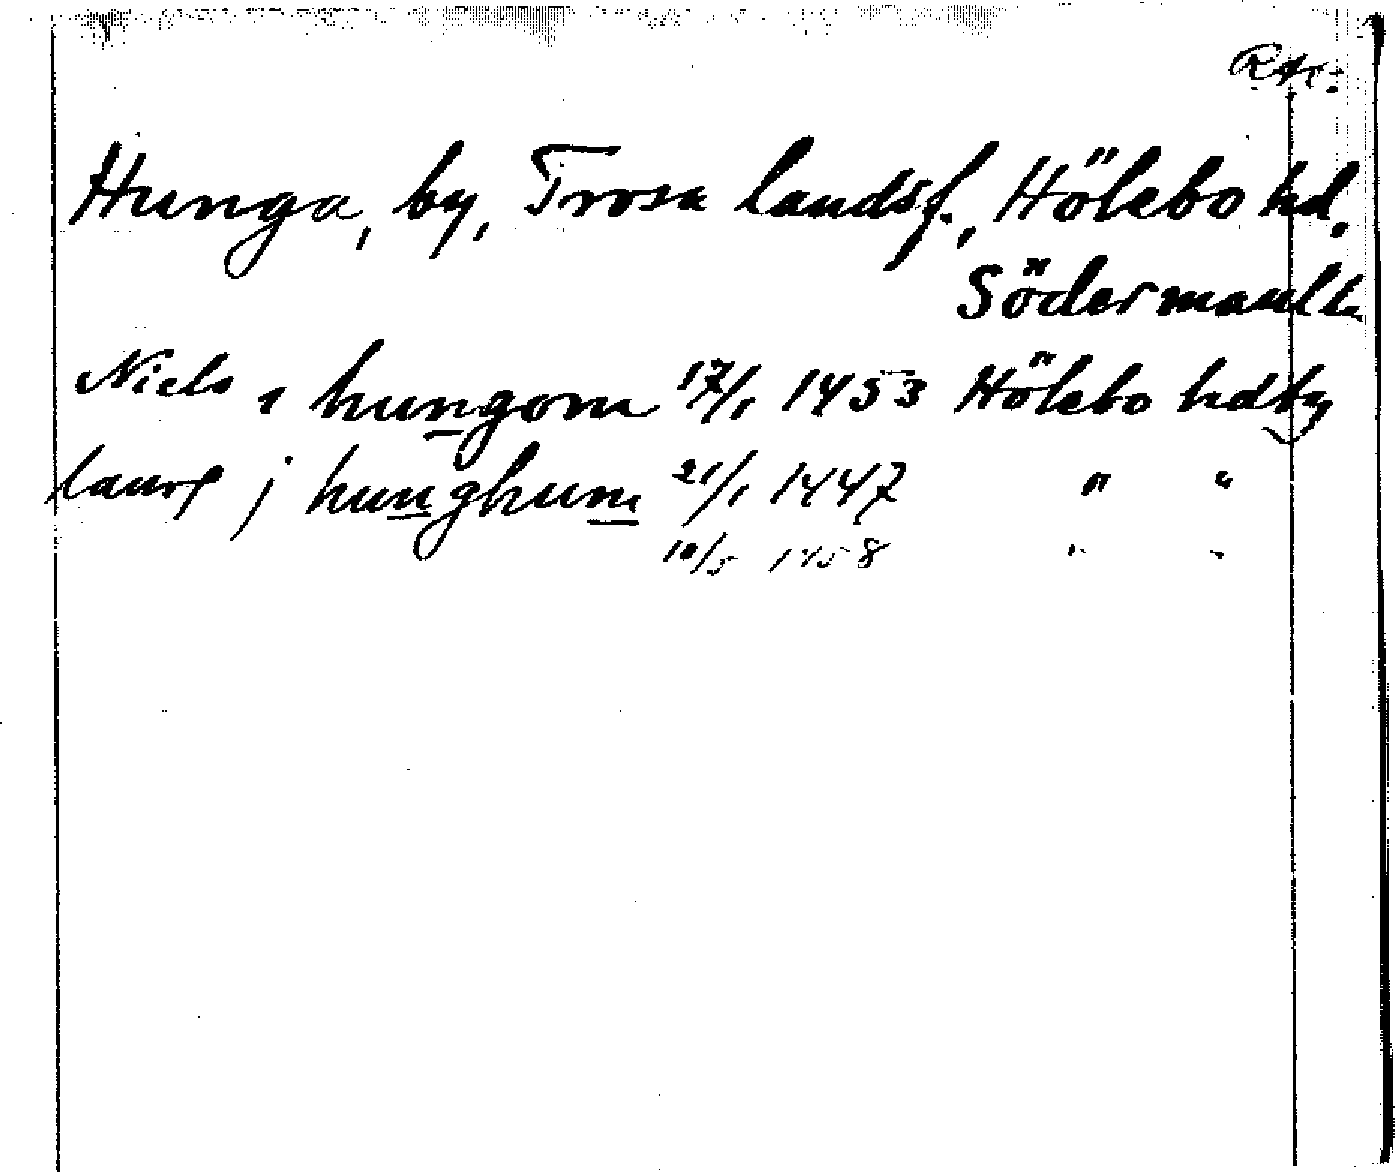 Hunga, by, Trosa landsf., Hölebo hd.
Södermanl.
Niels i hungom 17/1 1453 Hölebo hdby
laurs j hunghum 21/1 1447 " "
10/5 1458 " "